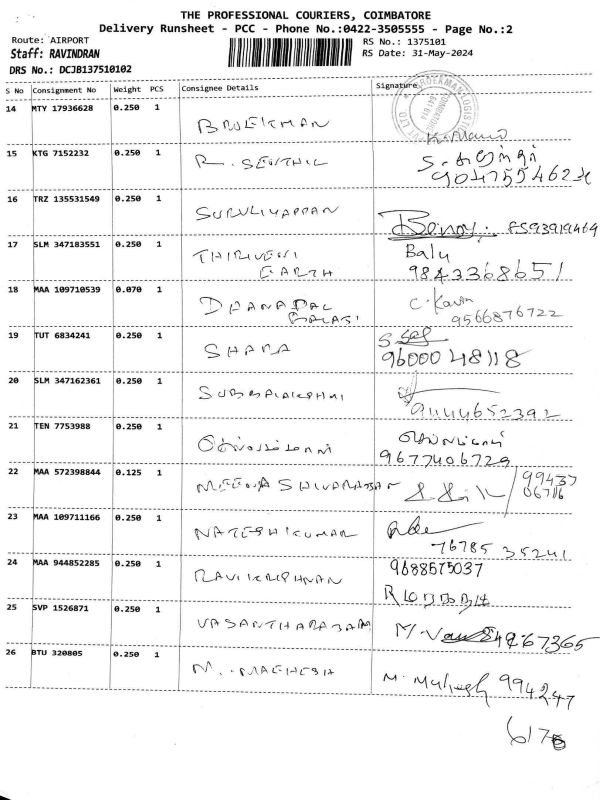 THE PROFESSIONAL COURIERS, COIMBATORE
Delivery Runsheet - PCC - Phone No.:0422-3505555 - Page No.:2
Route: AIRPORT
RS No.: 1375101
Staff: RAVINDRAN
RS Date: 31-May-2024
DRS No.: DCJB137510102
S No Consignment No Weight PCS Consignee Details Signature
14 MTY 17936628 0.250 1 BROEKMAN
15 KTG 7152232 0.250 1 R. SENTHIL S.
9047554624
16 TRZ 135531549 0.250 1 SURULIYAPPAN Benoy
17 SLM 347183551 0.250 1 THIRUVENI EARTH Balu
9843368651
18 MAA 109710539 0.070 1 DHANAPAL BALAJI C. Kavin
9566876722
19 TUT 6834241 0.250 1 SHARA S
9600048118
20 SLM 347162361 0.250 1 SUBBALAKSHMI
9444652392
21 TEN 7753988 0.250 1
9677406729
22 MAA 572398844 0.125 1 MEENA SHIVARAJAN 99437
06716
23 MAA 109711166 0.250 1 NATESHKUMAR
76785 35241
24 MAA 944852285 0.250 1 RAVIKRISHNAN 9688575037
25 SVP 1526871 0.250 1 VASANTHARAJAM M.
26 BTU 320805 0.250 1 M. MAGHESH M. Mahesh 994247
6175